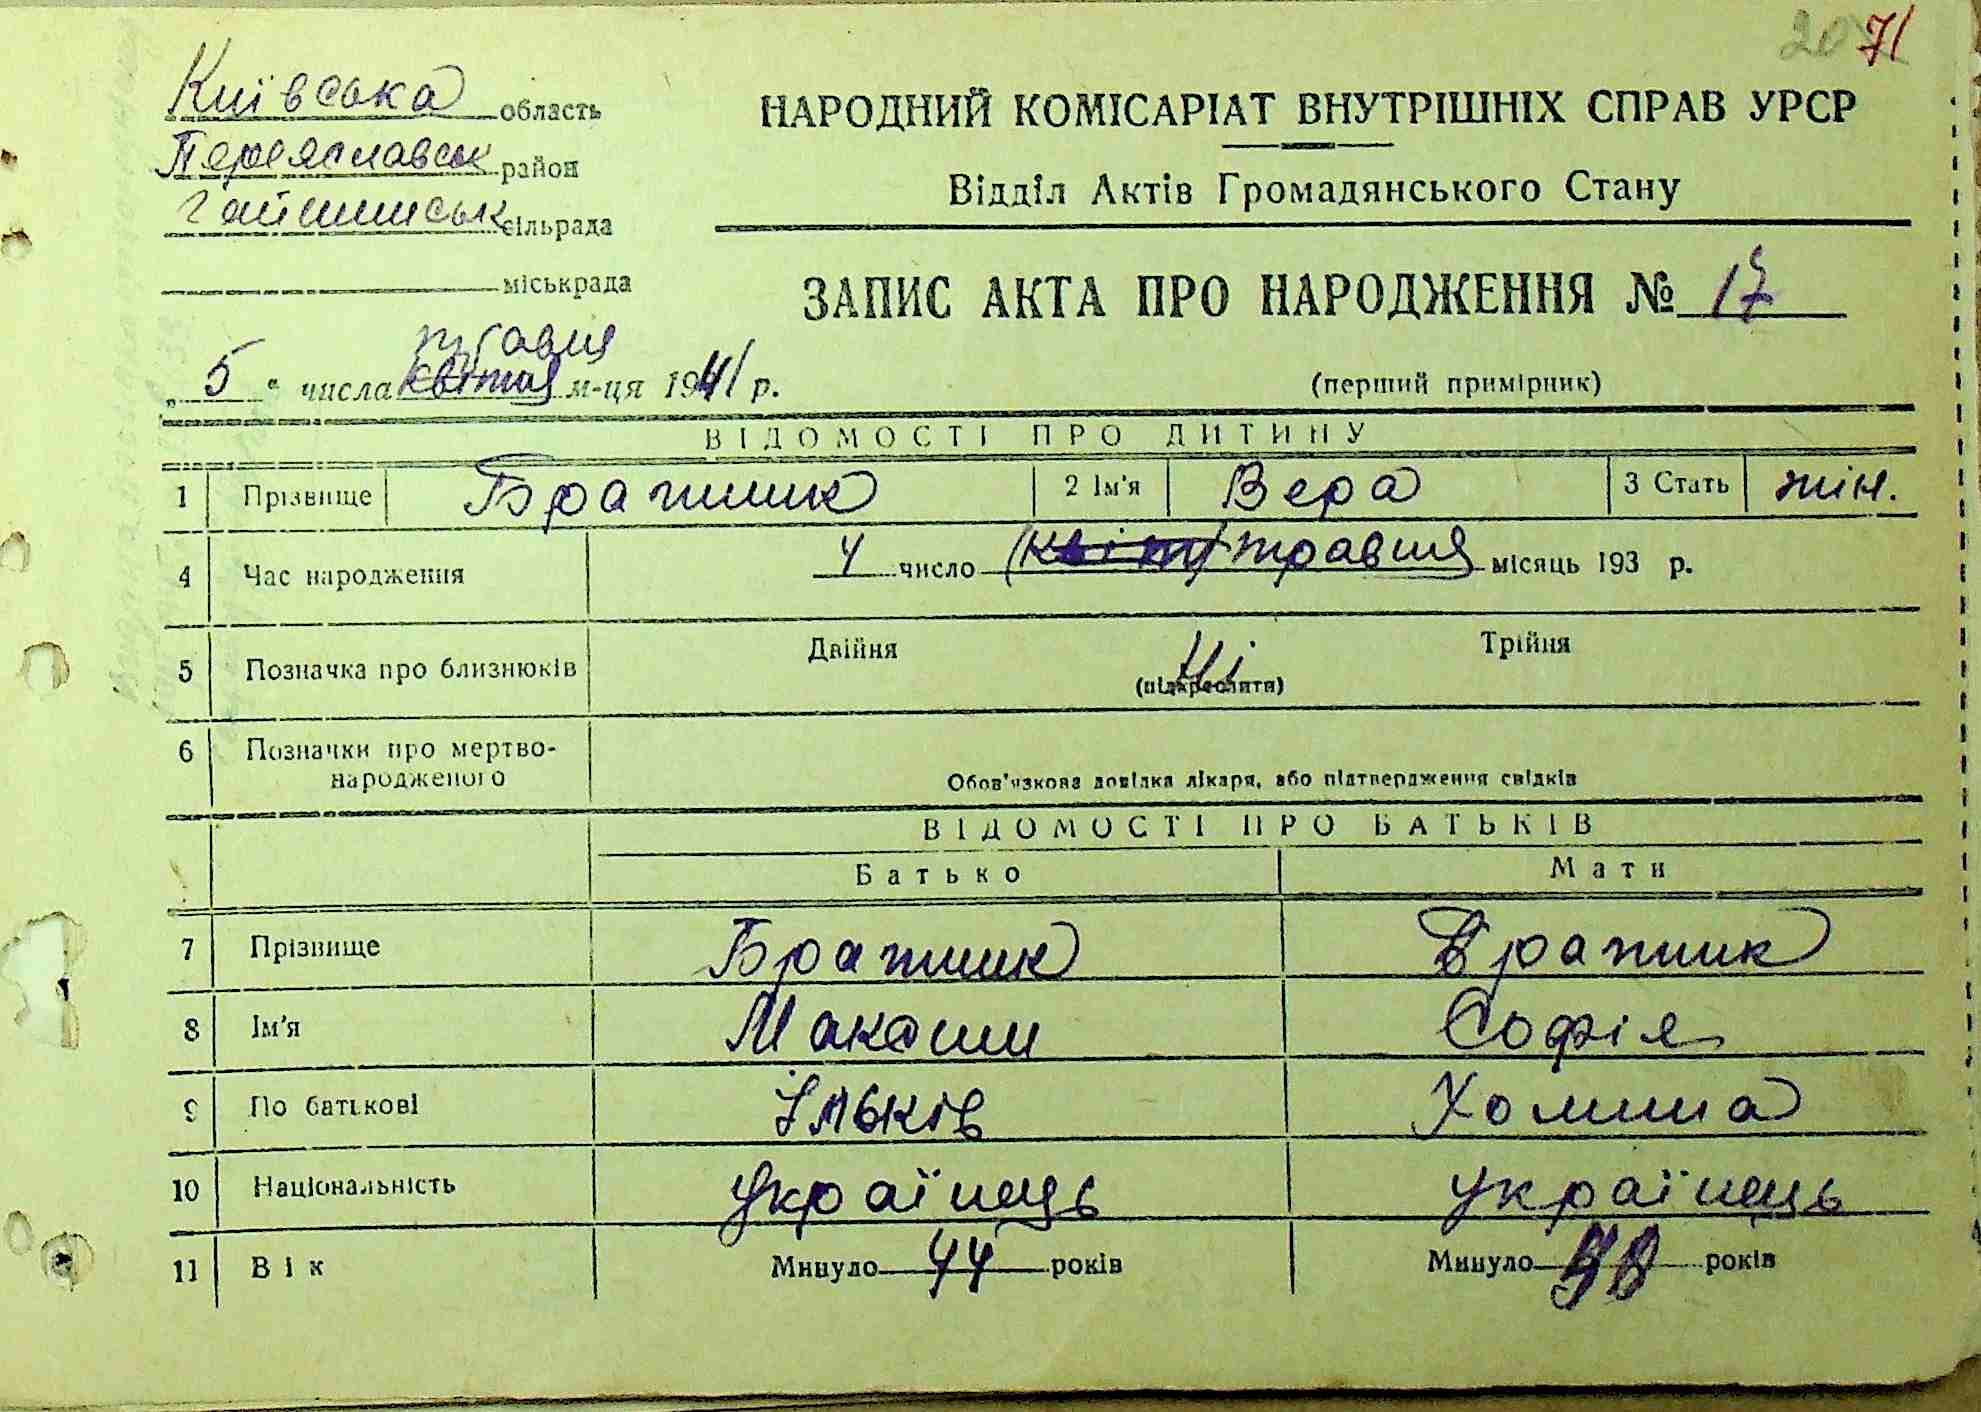 71
Київська область
Переяславськ район
Гайшинськ сільрада
міськрада
НАРОДНИЙ КОМІСАРІАТ ВНУТРІШНІХ СПРАВ УРСР
Відділ Актів Громадянського Стану
ЗАПИС АКТА ПРО НАРОДЖЕННЯ № 17
травня
„5“ числа квітня м-ця 1941 р.
(перший примірник)
ВІДОМОСТІ ПРО ДИТИНУ
1 Прізвище Братник 2 Ім'я Вера 3 Стать жін.
4 Час народження 4 число (квітн) травня місяць 193 р.
5 Позначка про близнюків Двійня Ні Трійня
(підкреслити)
6 Позначки про мертво-
народженого
Обов'язкова довідка лікаря, або підтвердження свідків
ВІДОМОСТІ ПРО БАТЬКІВ
Батько Мати
7 Прізвище Братник Братник
8 Ім'я Максим Софія
9 По батькові Ільків Хомина
10 Національність українець українець
11 Вік Минуло 44 років Минуло років